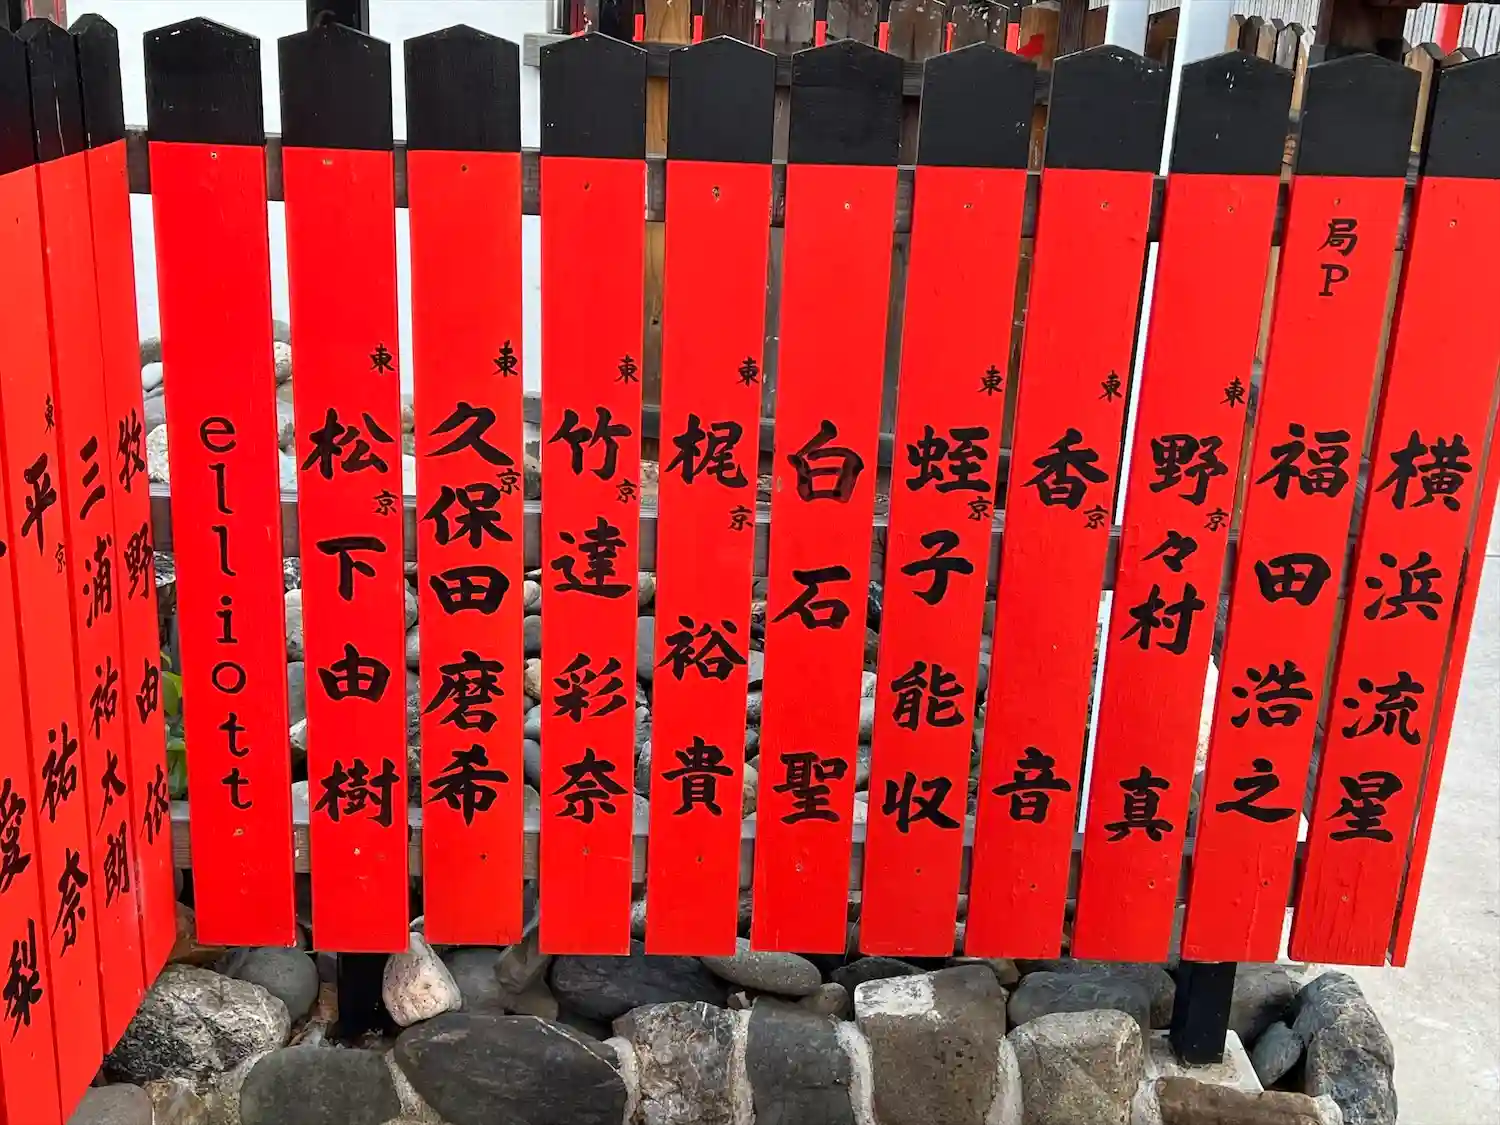 横浜流星
局P
福田浩之
東京
野々村真
東京
香音
東京
蛭子能収
白石聖
東京
梶裕貴
東京
竹達彩奈
東京
久保田磨希
東京
松下由樹
elliott
牧野由依
三浦祐太朗
東京
平祐奈
愛梨